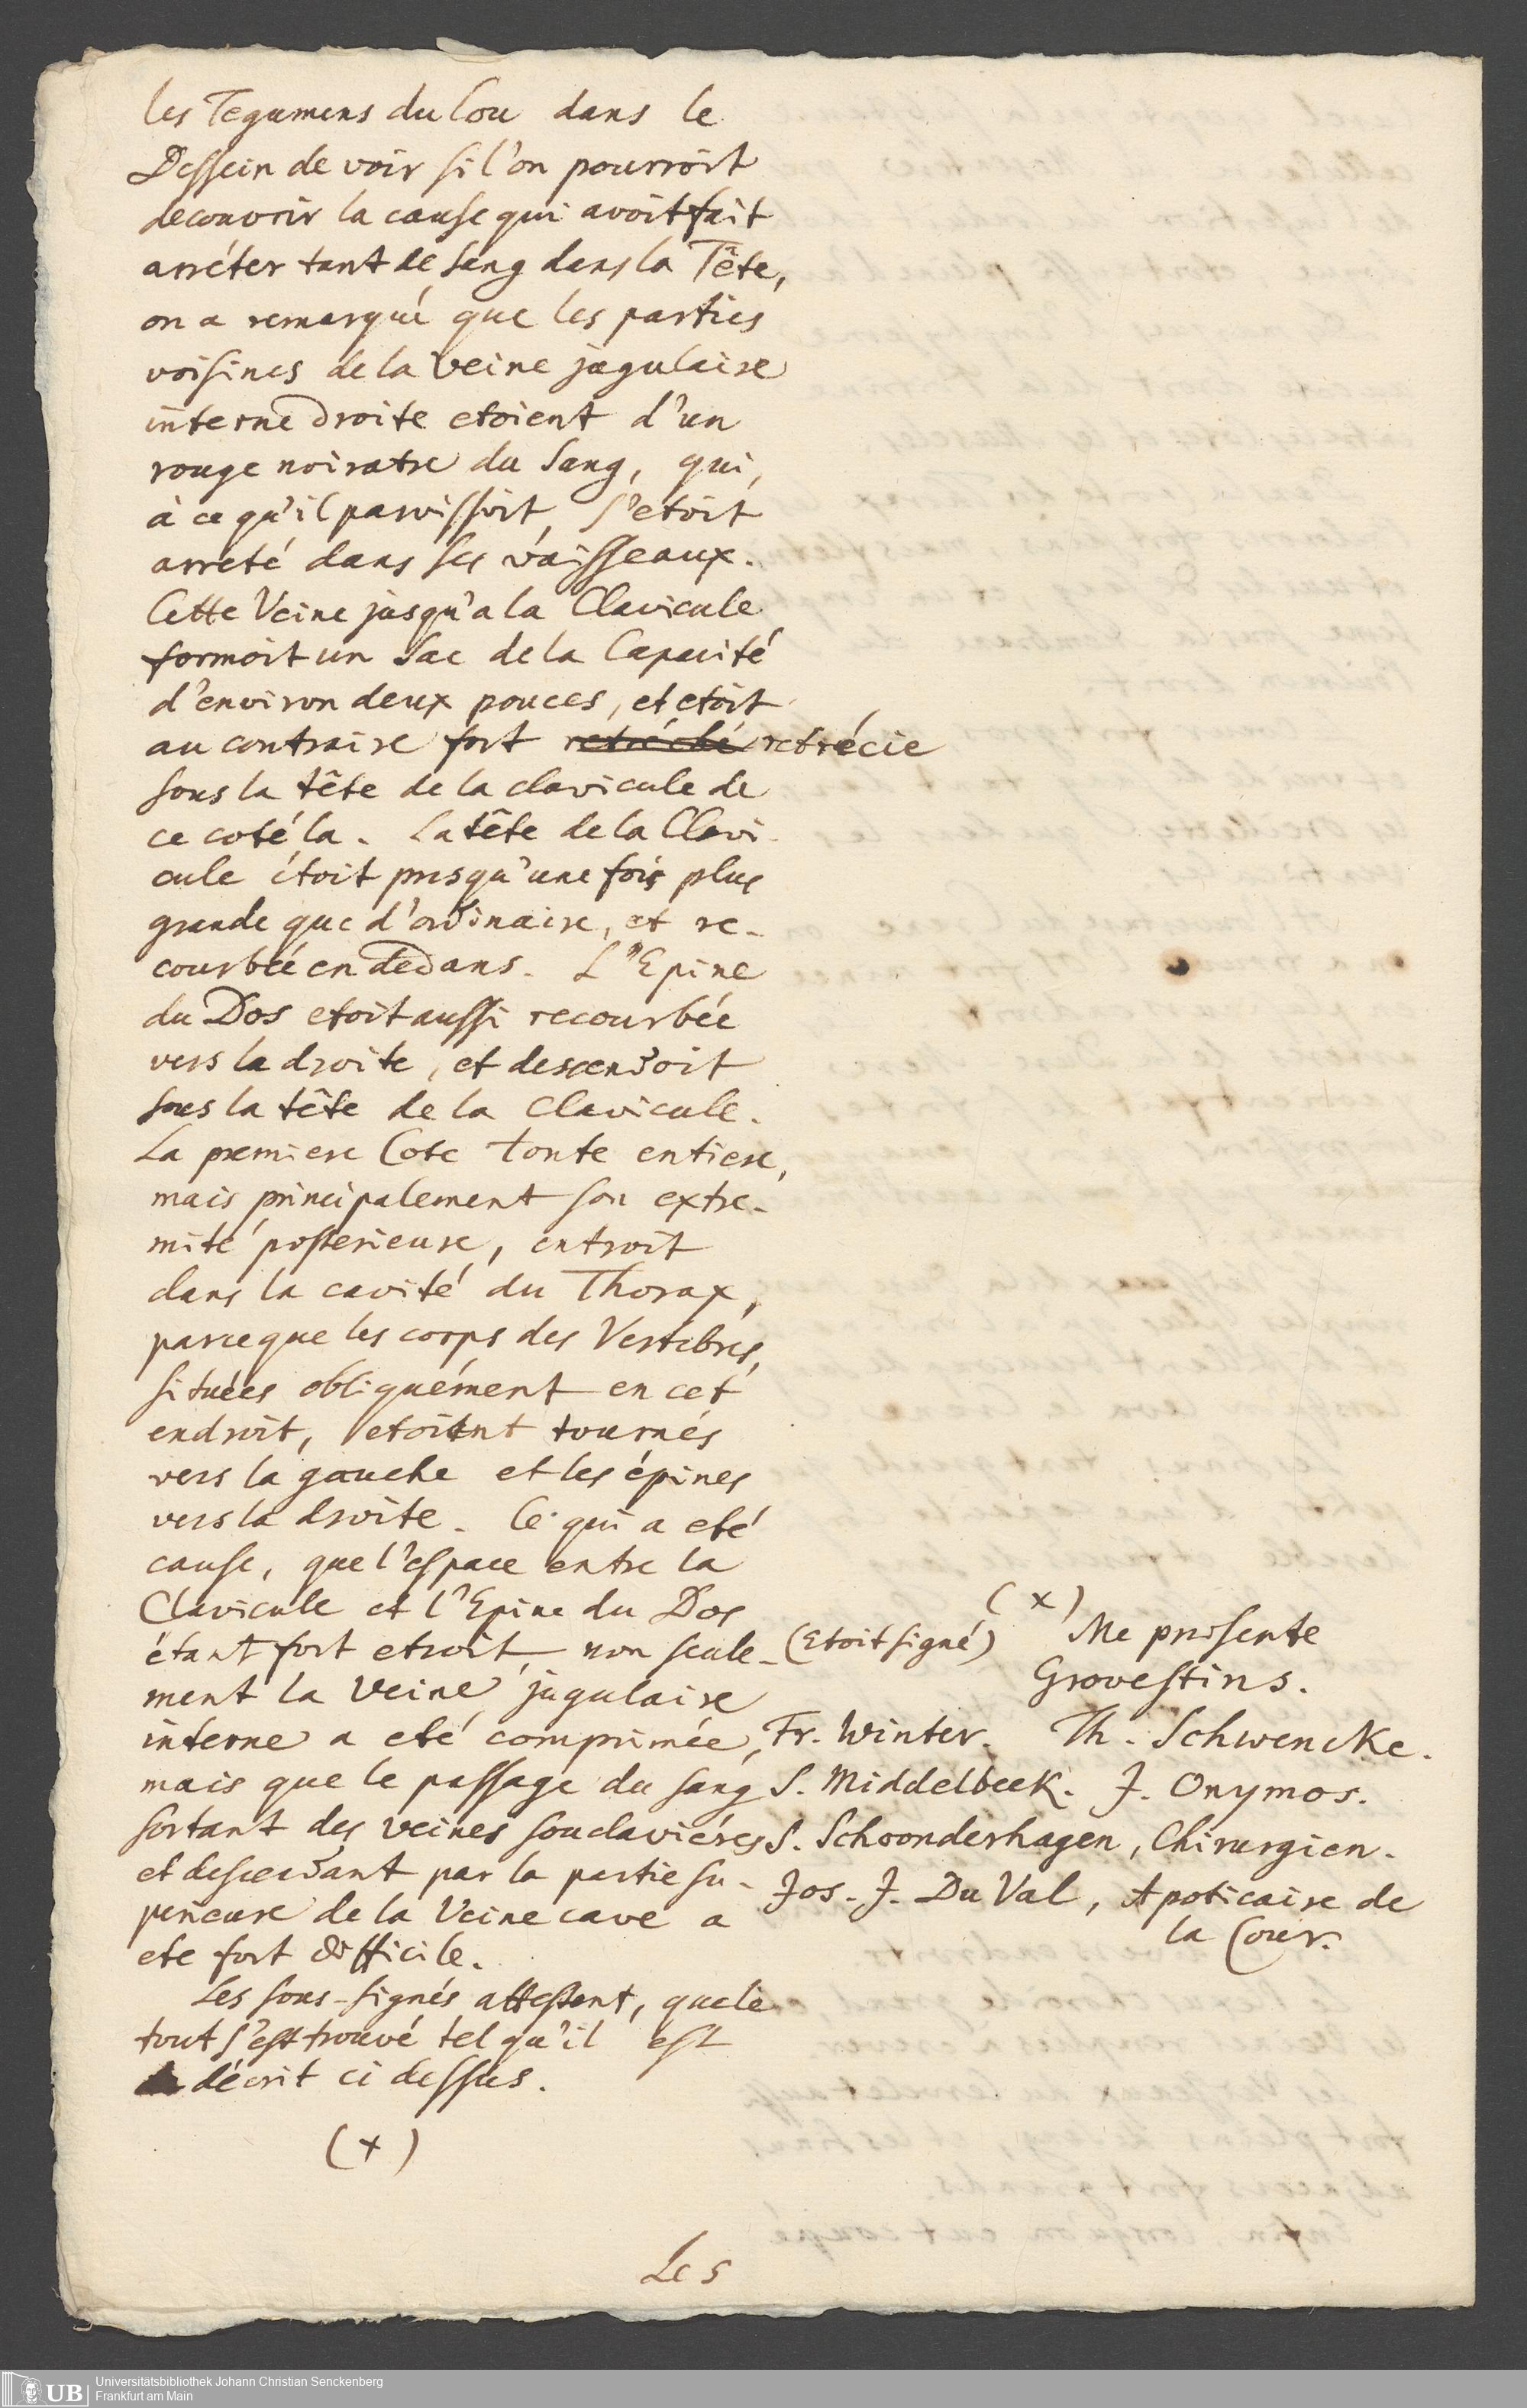 les Tegumens du Cou dans le
Dessein de voir si l'on pourroit
decouvrir la cause qui avoit fait
arréter tant de Sang dans la Tête,
on a remarqué que les parties
voisines de la Veine jugulaire
interne Droite etoient d'un
rouge noiratre du Sang, qui,
à ce qu'il paroissoit, s'etoit
arreté dans ses vaisseaux.
Cette Veine jusqu'a la Clavicule
formoit un Sac de la Capacité
d'environ deux pouces, et etoit
au contraire fort retrécie
sous la tête de la clavicule de
ce coté la. La tête de la Clavi-
cule étoit presqu'une fois plus
grande que d'ordinaire, et re-
courbée en dedans. L'Epine
du Dos etoit aussi recourbée
vers la droite, et descendoit
sous la tête de la Clavicule.
La premiere Cote toute entiere,
mais principalement son extre-
mité posterieure, entroit
dans la cavité du Thorax,
parceque les corps des Vertebres,
situées obliquément en cet
endroit, etoient tournés
vers la gauche et les épines
vers la droite. Ce qui a eté
cause, que l'espace entre la
Clavicule et l'Epine du Dos
étant fort etroit, non seule-
ment la Veine jugulaire
interne a eté comprimée,
mais que le passage du sang
sortant des veines souclaviéres
et descendant par la partie su-
perieure de la Veine cave a
ete fort difficile.
Les sous-signés attestent, que le
tout s'est trouvé tel qu'il est
décrit ci dessus.
(x)
(x)
(Etoit signé) Me presente
Grovestins.
Fr. Winter. Th. Schwencke.
S. Middelbeek. J. Onymos.
S. Schoonderhagen, Chirurgien.
Jos. J. Du Val, Apoticaire de
la Cour.
Les
UB
Universitätsbibliothek Johann Christian Senckenberg
Frankfurt am Main